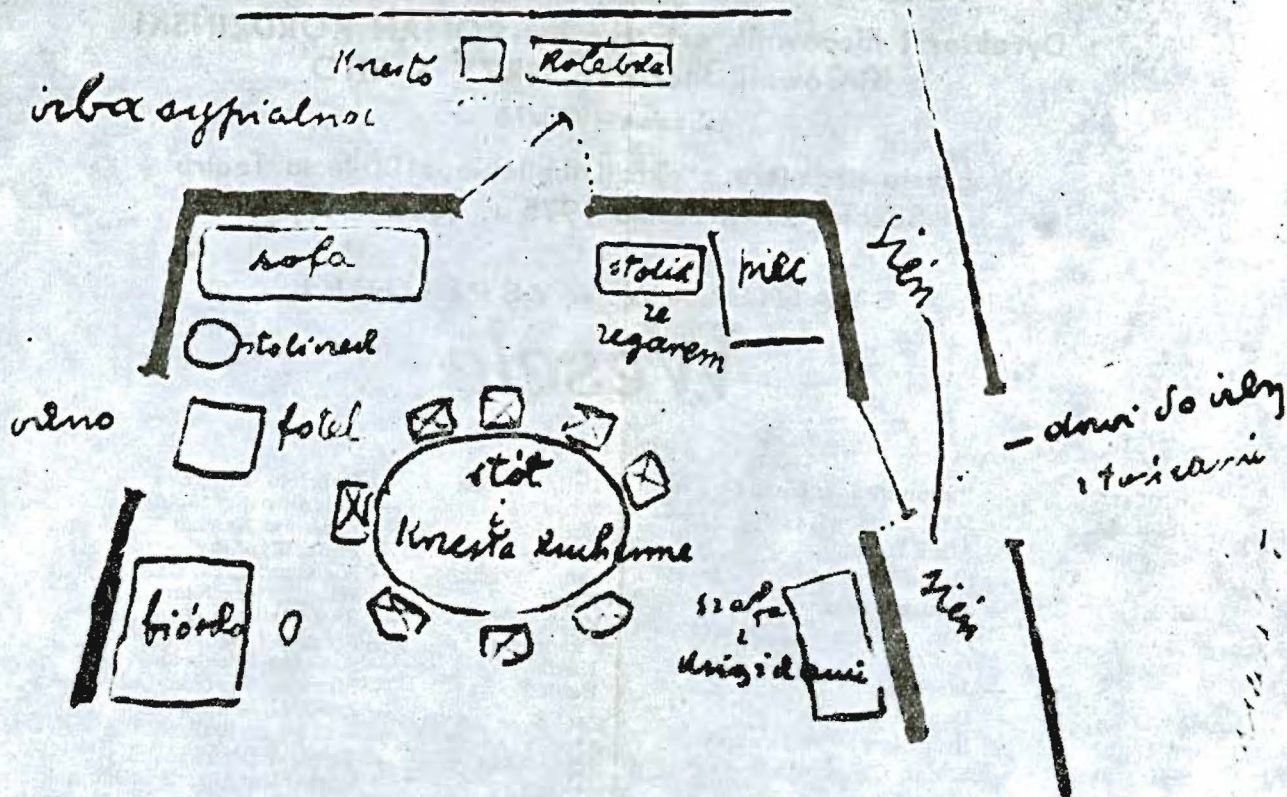 Krzesło
Kolebka
izba sypialna
sień
sofa
stolik
ze
zegarem
piec
stoliczek
okno
fotel
stół
i
krzesła kuchenne
– drzwi do izby
biórko
szafa
z
książkami
sień